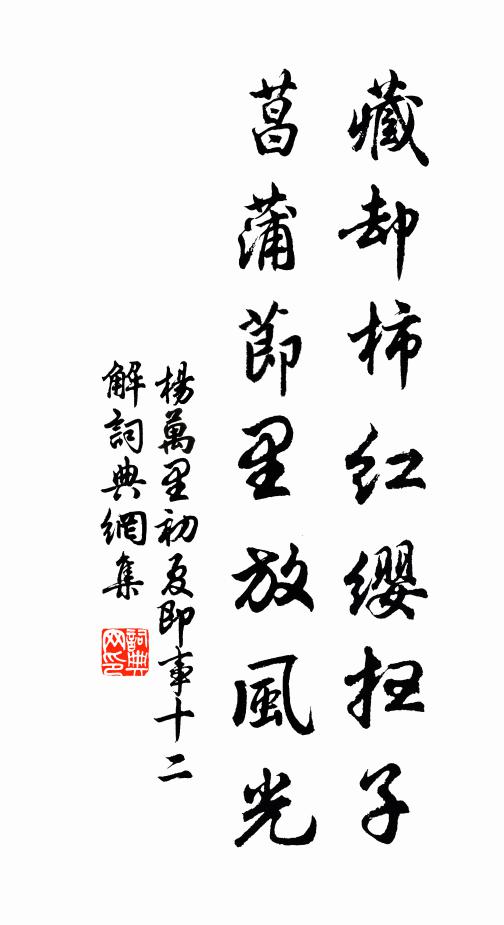 藏却柿紅纓扭子
菖蒲節里放風光
楊萬里初夏即事十二
解詞典網集
詞典网印